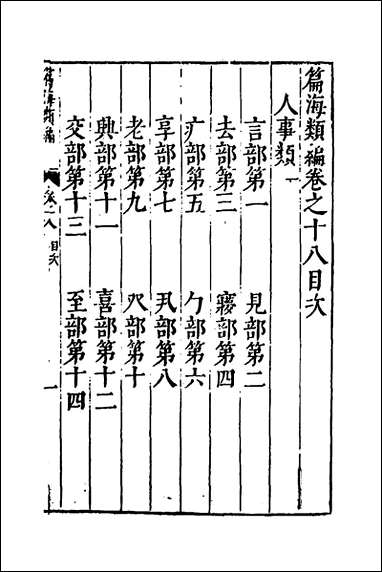 篇海類編卷之十八目次
人事類一
言部第一　見部第二
去部第三　㝱部第四
疒部第五　勹部第六
享部第七　丮部第八
老部第九　尺部第十
興部第十一　喜部第十二
交部第十三　至部第十四
篇海類編　卷之八　目次　一